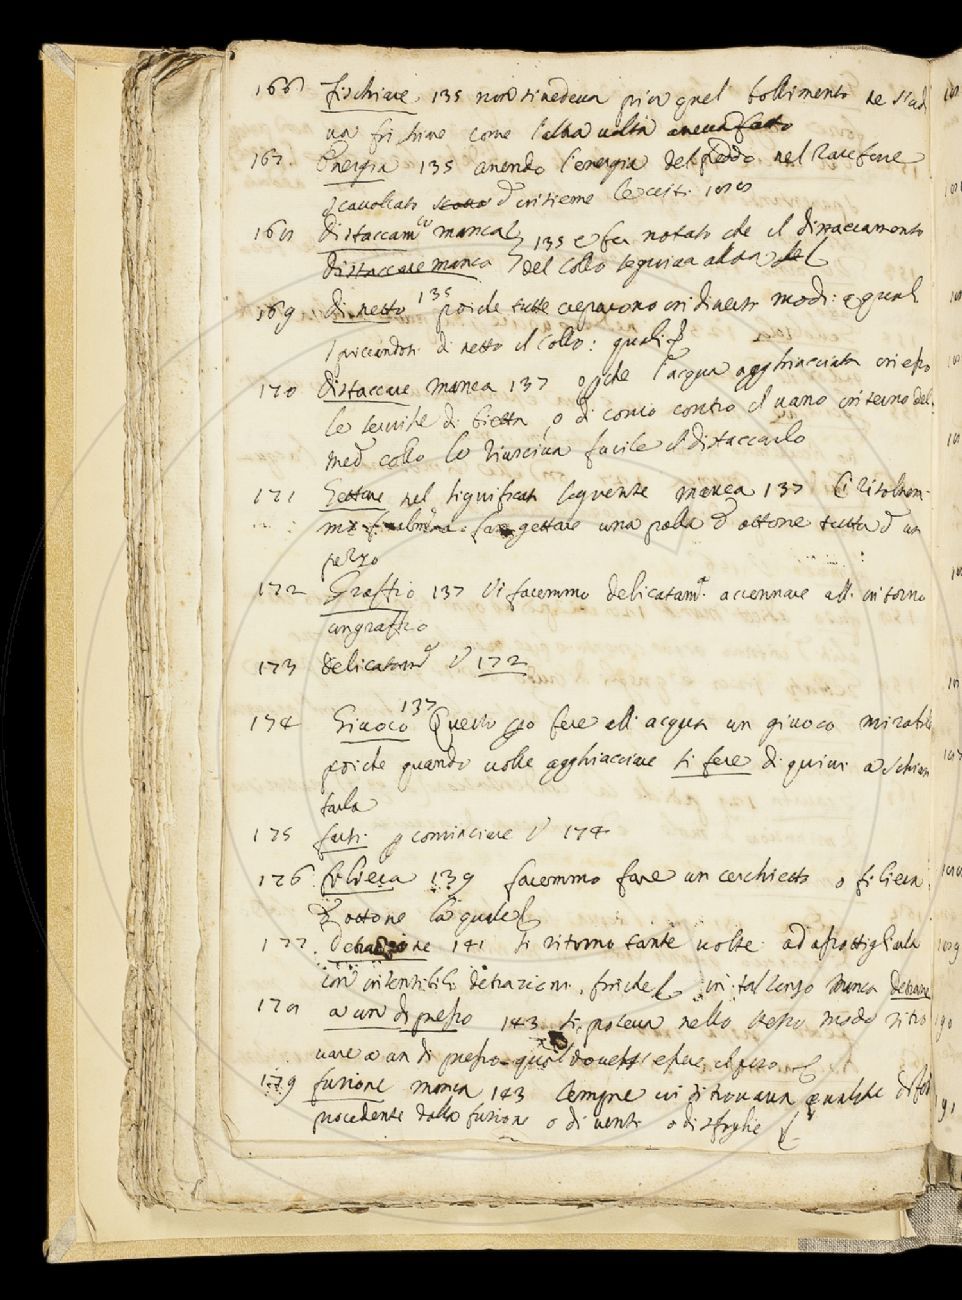 166 fischiare 135 non si vedeva più quel bollimento ne s'ud
iva frischiare come l'altra volta aveva fatto
167 Energia 135 avendo l'energia del freddo nel rarefare
scavalcato e insieme
168 distaccam.to manca 135 e fu notato che il distaccamento
distaccare manca del collo seguiva allora
169 di netto 135 poiche tutte crepavono in diversi modi: e quali
spiccandosi di netto il collo: quali
170 distaccare manca 137 che l'acqua agghiacciata in esso
le servisse di bietta, o di conio contro il vano interno del
med.o collo le riusciva facile il distaccarlo
171 Gettare nel significato seguente manca 137 Ci risolvem
mo fare gettare una palla d'ottone tutta d'un
pezzo
172 Graffio 137 Vi facemmo delicatam.e accennare all' intorno
un graffio
173 delicatam.e V 172
174 Giuoco 137 Questo fece all' acqua un giuoco mirabile
poiche quando volle agghiacciare si fece di quivi a schian
tarla
175 farsi p cominciare V 174
176 filiera 139 facemmo fare un cerchietto o filiera
d'ottone la quale
177 Detrazione 141 si ritornò tante volte ad assottigliarla
con insensibili detrazioni, finche in tal luogo manca detrarre
178 a un di presso 143 si poteva nello stesso modo ritro
vare a un di presso qual dovesse essere il peso
179 fusione manca 143 sempre vi si trovava qualche difet
procedente dalla fusione o di venti o di sfoglie